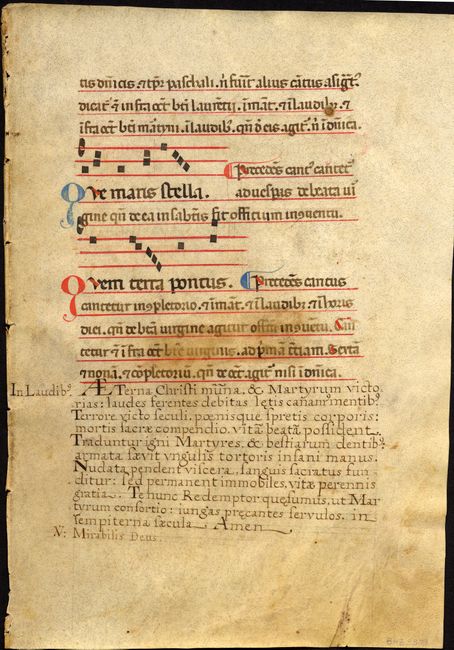 tis dnicis ⁊ tpr paschali. n̄ fūit alius cātus asigt᷒
dicat᷒ ⁊ infra oct̄ bti laurētii. imāt. ⁊ ilaudib᷒. ⁊
ifra oct̄ bti martyni. ilaudib᷒. qn̄ d'eis agit᷒. n̄ i dnica.
Precedēs cant᷒ cantet᷒
Ave maris stella.
ad vesp̄as de beata vi
gine qn̄ de ea in sabtis fit officium inqventu.
Quem terra pontus.
Precedēs cantus
cantetur incpletorio. ⁊ imāt. ⁊ ilaudib᷒ ⁊ ihoris
diei. qn̄ de btā virgine agitur offm̄ iqvētu. Can
tetur ⁊ ifra oct̄ bte virginis. ad pmā tciam. Sextā
⁊ nonā. ⁊ cōpletoriū. qn̄ de oct̄ agit᷒ nisi i dnica.
In Laudib᷒
ÆTerna Christi mūna, & Martyrum victo
rias: laudes ferentes debitas lętis canam᷒ mentib᷒
Terrore victo seculi, pœnisque spretis corporis:
mortis sacræ compendio, vitā beatā possident.
Traduntur igni Martyres, & bestiarum dentib᷒
armata sævit vngulis tortoris insani manus.
Nudata pendent viscera, sanguis sacratus fun
ditur: sed permanent immobiles, vitæ perennis
gratia. Te nunc Redemptor quęsumus, ut Mar
tyrum consortio: iungas pręcantes servulos, in
sempiterna sæcula. Amen
V: Mirabilis Deus.